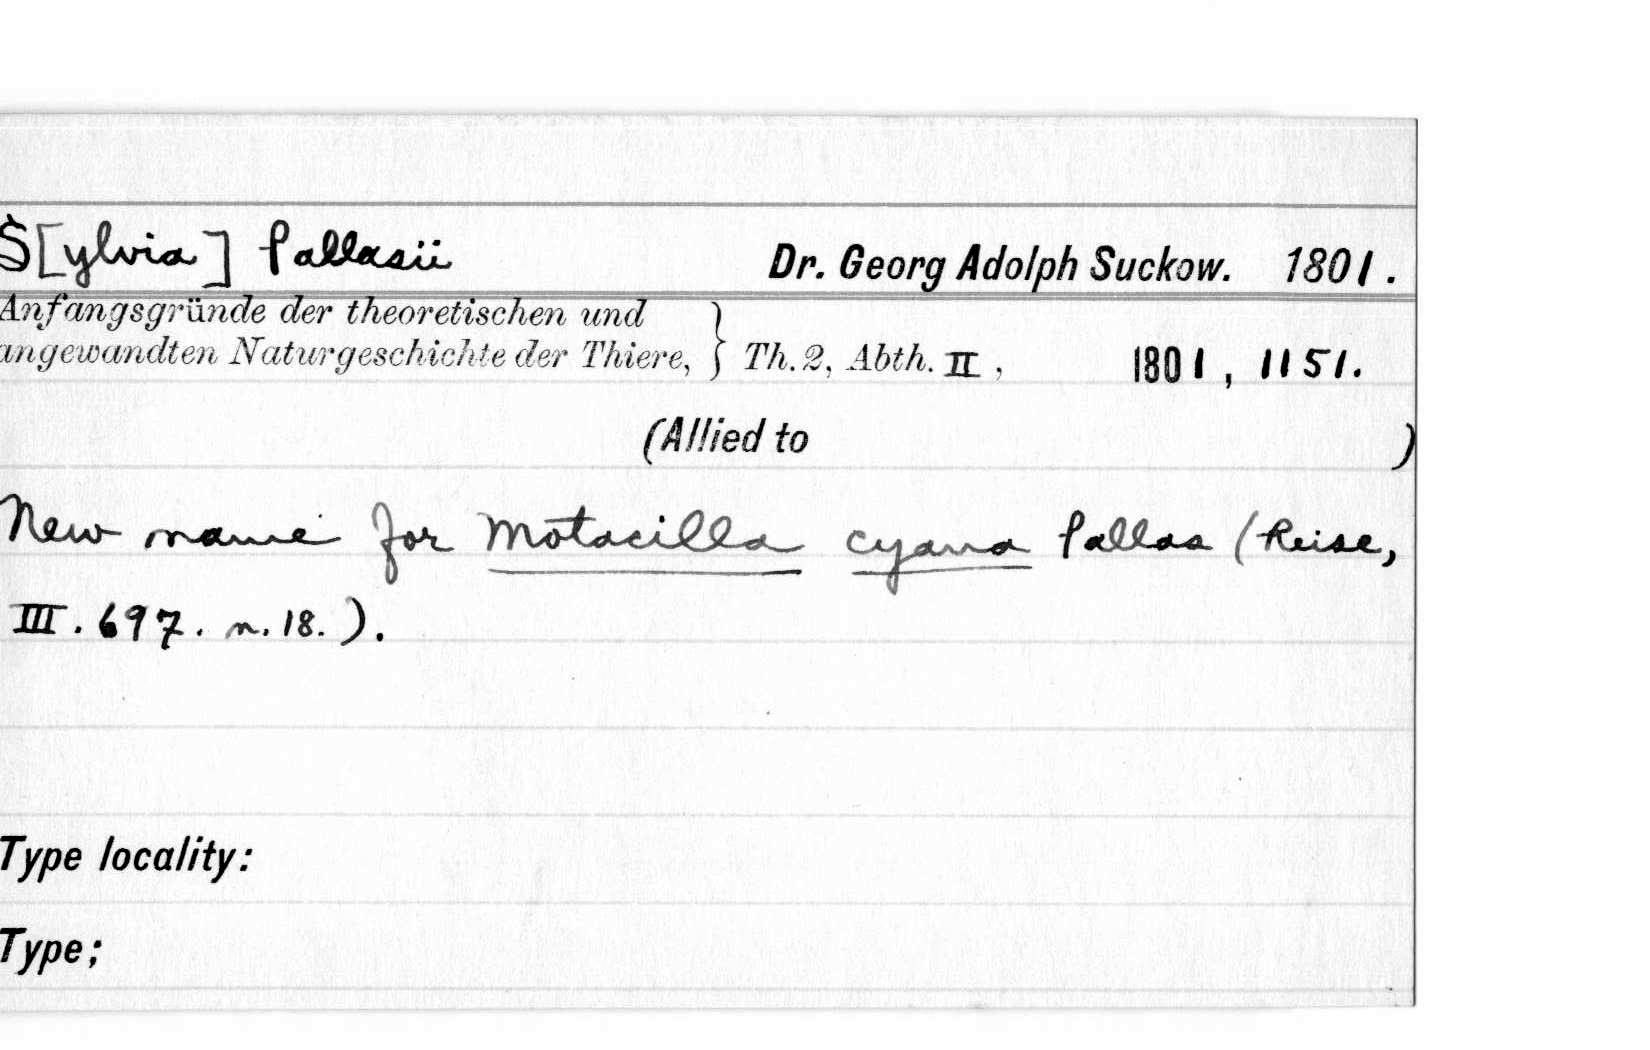 S[ylvia] Pallasii Dr. Georg Adolph Suckow. 1801.
Anfangsgründe der theoretischen und
angewandten Naturgeschichte der Thiere, } Th. 2, Abth. II, 1801, 1151.
(Allied to )
New name for Motacilla cyana Pallas (Reise,
III. 697. n. 18.).
Type locality:
Type;